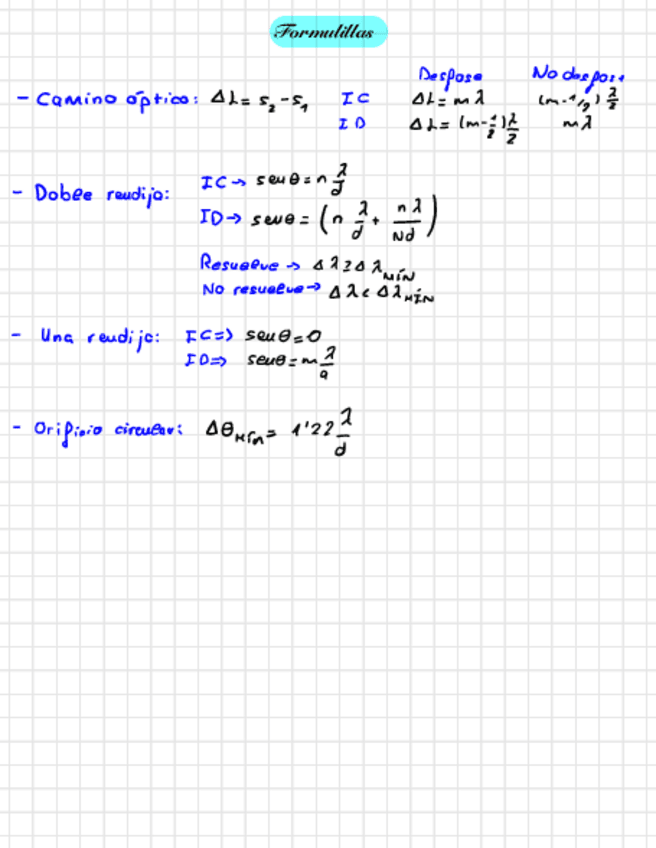 Formulillas
Despase No despase
- Camino óptico: ΔL = s₂ - s₁ IC ΔL = mλ (m-1/2) λ/2
ID ΔL = (m-1/2) λ/2 mλ
- Doble rendija: IC → senθ = n λ/d
ID → senθ = (n λ/d + nλ/Nd)
Resuelve → Δλ ≥ Δλ MÍN
No resuelve → Δλ < Δλ MÍN
- Una rendija: IC => senθ = 0
ID => senθ = m λ/a
- Orificio circular: Δθ Mín = 1'22 λ/d